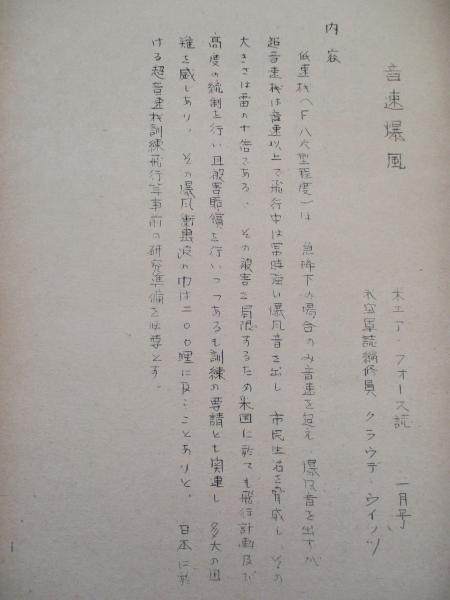 音速爆風
米エア・フォース誌 一月号
米空軍誌編修員 クラウデ ウイッツ
内容
低速機(F八六型程度)は 急降下の場合のみ音速を超え 爆風音を出すが
超音速機は音速以上で飛行中は常時強い爆風音を出し 市民生活を脅威し、その
大きさは雷の十倍である、その被害を局限するため米国に於ても飛行計画及び
高度の統制を行い且被害賠償を行いつつあるも訓練の要請とも関連し 多大の困
難を感じあり、その爆風衝撃波の巾は二〇〇哩に及ぶことありと、 日本に於
ける超音速機訓練飛行等事前の研究準備を必要とす。